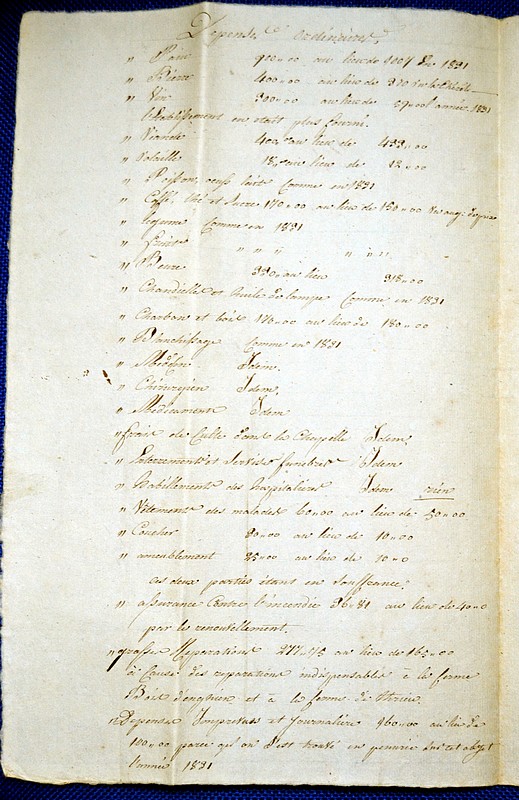 Depenses ordinaires
" Pain 900"00 au lieu de 1007 en 1831
" Bierre 400"00 au lieu de 370
" Vin 300"00 au lieu de l'année 1831
l'Etablissement en etait plus fourni.
" Viande 400" au lieu de 433"00
" Volaille 18" au lieu de 12"00
" Poisson, oeufs lait Comme en 1831
" Caffé, thé et Sucre 170"00 au lieu de 150"00
" légume Comme en 1831
" fruits " " " " " "
" Beure 330" au lieu 318"00
" Chandelle et huile de lampe Comme en 1831
" Charbon et bois 170"00 au lieu de 180"00
" Blanchissage Comme en 1831
" Médecin Idem.
" Chirurgien Idem.
" Medicament Idem
" frais de Culte dans la Chapelle Idem
" Enterrements et Services funebres Idem
" habillements des hospitalieres Idem
" Vêtements des malades 60"00 au lieu de 50"00
" Coucher 20"00 au lieu de 10"00
" ameublement 25"00 au lieu de 10"0
ces deux parties étant en Souffrance.
" assurance Contre l'incendie 36"81 au lieu de 40"0
par le renouvellement.
" grosses Reparations 277"75 au lieu de 165"00
à Cause des reparations indispensables à la ferme
Bois d'enghien et à la ferme de
" Depenses Imprévues et Journalière 160"00 au lieu de
100"00 parce qu'on s'est trouvé en penurie sur cet objet
l'année 1831